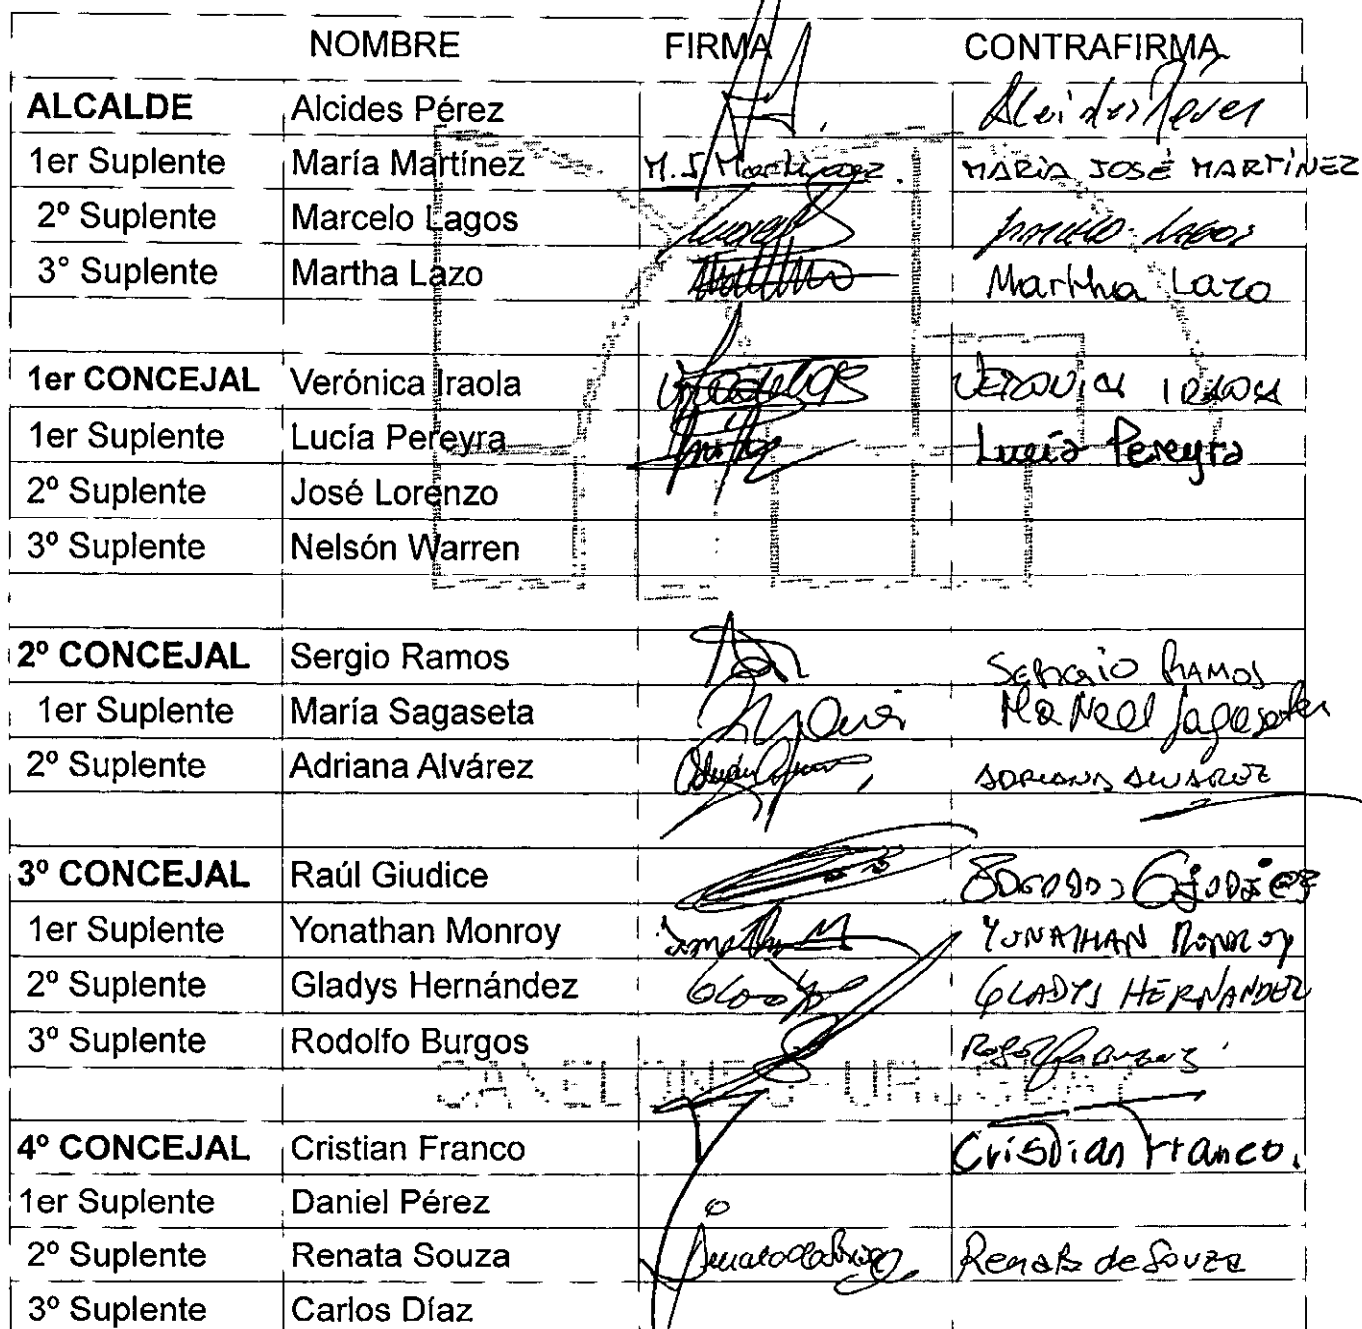 NOMBRE FIRMA CONTRAFIRMA
ALCALDE Alcides Pérez Alcides Perez
1er Suplente María Martínez M.J Martínez. MARÍA JOSÉ MARTÍNEZ
2º Suplente Marcelo Lagos Marcelo Lagos
3° Suplente Martha Lazo Martha Lazo
1er CONCEJAL Verónica Iraola VERONICA IRAOLA
1er Suplente Lucía Pereyra Lucía Pereyra
2º Suplente José Lorenzo
3º Suplente Nelsón Warren
2º CONCEJAL Sergio Ramos SERGIO RAMOS
1er Suplente María Sagaseta Ma Noel Sagaseta
2º Suplente Adriana Alvárez ADRIANA ALVAREZ
3º CONCEJAL Raúl Giudice
1er Suplente Yonathan Monroy YONATHAN MONROY
2º Suplente Gladys Hernández GLADYS HERNANDEZ
3º Suplente Rodolfo Burgos
CANELONES - URUGUAY
4º CONCEJAL Cristian Franco Cristian Franco.
1er Suplente Daniel Pérez
2º Suplente Renata Souza Renata de Souza
3º Suplente Carlos Díaz